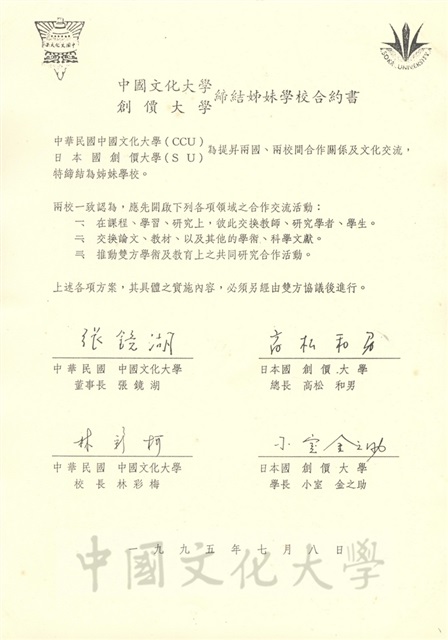 SOKA UNIVERSITY
中國文化大學
創價大學
締結姊妹學校合約書
中華民國中國文化大學(CCU)
日本國創價大學(SU)
為提昇兩國、兩校間合作關係及文化交流,
特締結為姊妹學校。
兩校一致認為,應先開啟下列各項領域之合作交流活動:
一、在課程、學習、研究上,彼此交換教師、研究學者、學生。
二、交換論文、教材、以及其他的學術、科學文獻。
三、推動雙方學術及教育上之共同研究合作活動。
上述各項方案,其具體之實施內容,必須另經由雙方協議後進行。
張鏡湖
高松和男
中華民國 中國文化大學
日本國 創價大學
董事長 張鏡湖
總長 高松 和男
林彩梅
小室金之助
中華民國 中國文化大學
日本國 創價大學
校長 林彩梅
學長 小室 金之助
一九九五年七月八日
中國文化大學